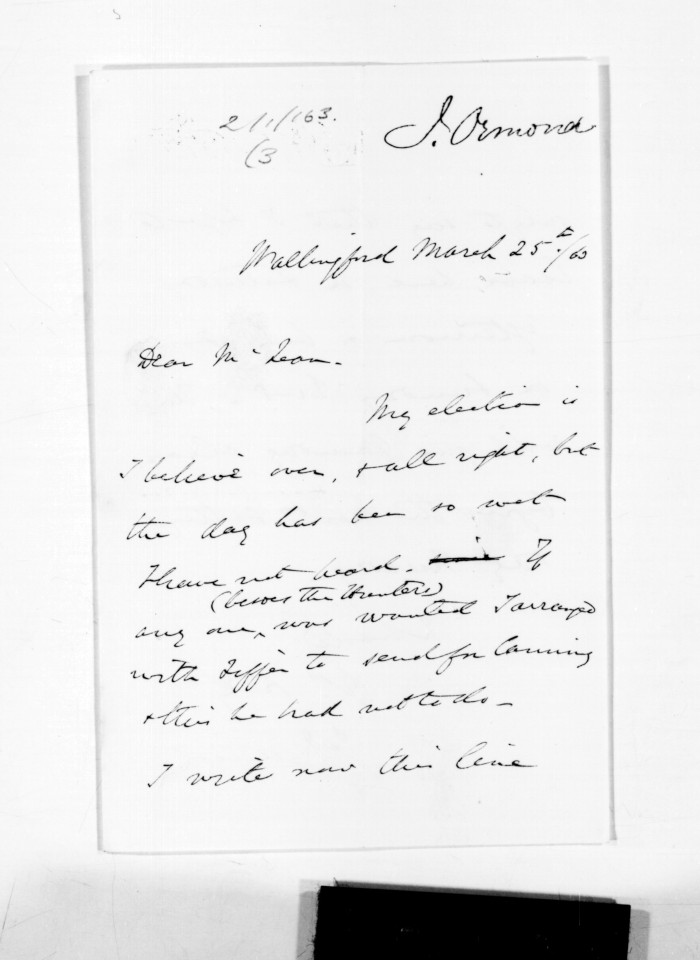 2/1/163.
(3
J. Ormond
Wallingford March 25th/63
Dear McLean.
My election is
I believe over, & all right, but
the day has been so wet
I have not heard. If
(besides the Hunters)
any one, was wanted I arranged
with Tiffen to send for Canning
& this he had not to do -
I write now this line